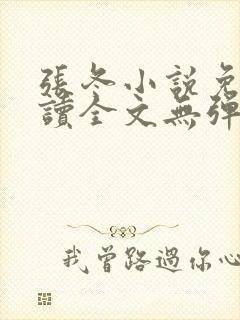 張冬小說免
讀全文無彈
我曾路過你心